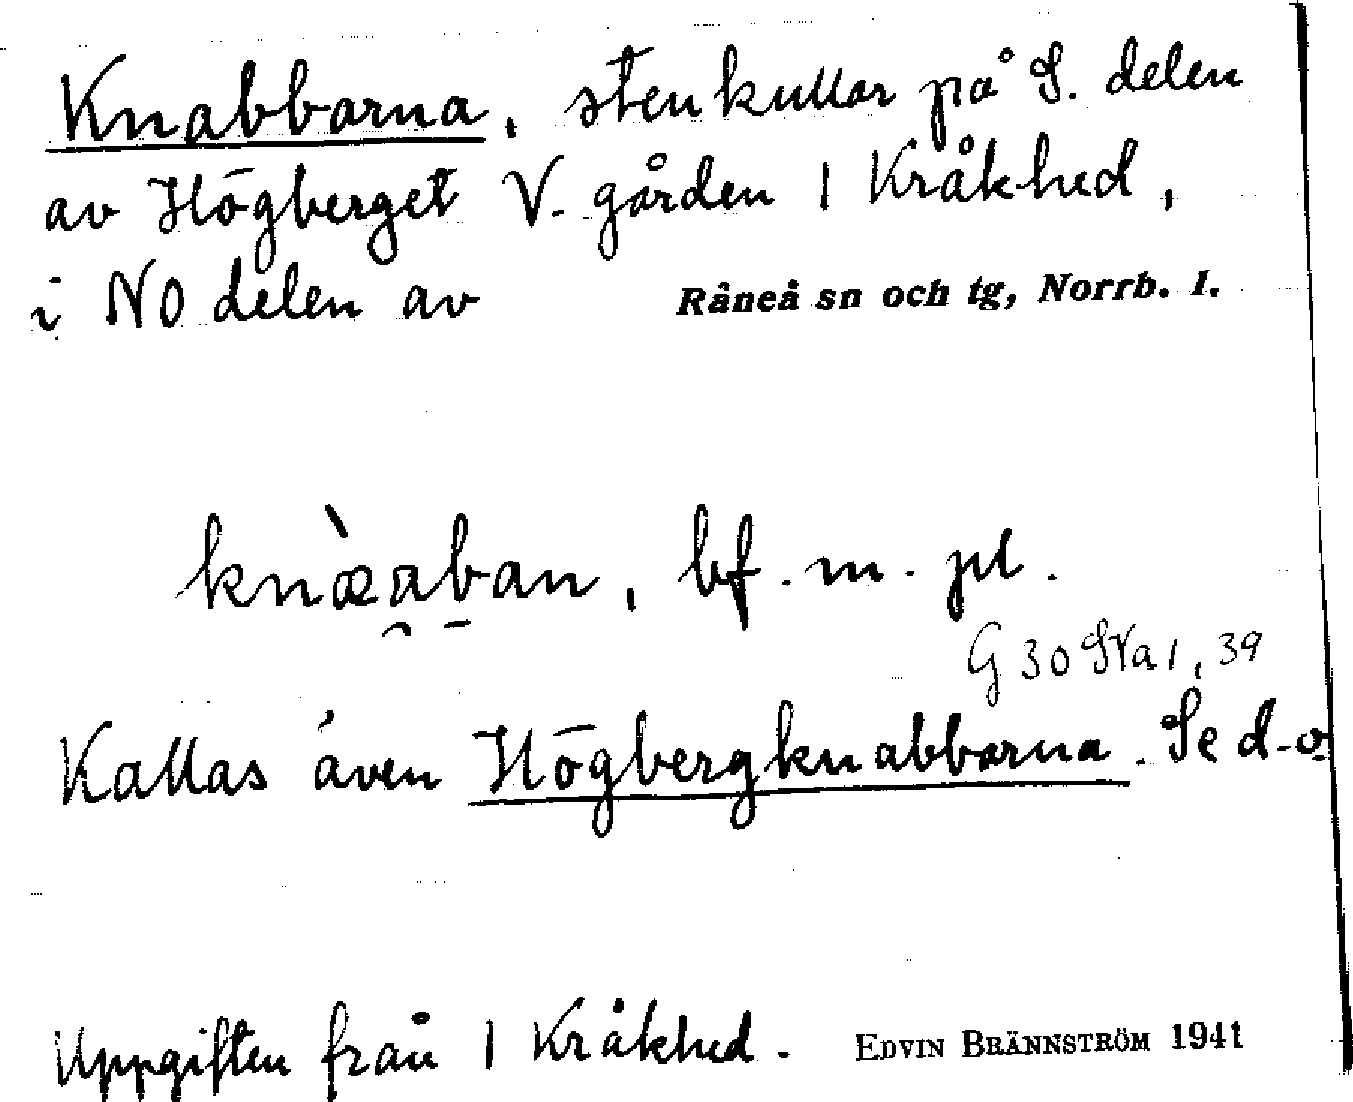 Knabbarna, stenkullar på S. delen
av Högberget V. gården 1 Kråkhed,
i NO delen av Råneå sn och tg, Norrb. l.
knæ̀a̯b̠an, bf. m. pl.
G 30 SVa 1, 39
Kallas även Högbergknabbarna. Se d.o
Uppgiften från 1 Kråkhed. EDVIN BRÄNNSTRÖM 1941